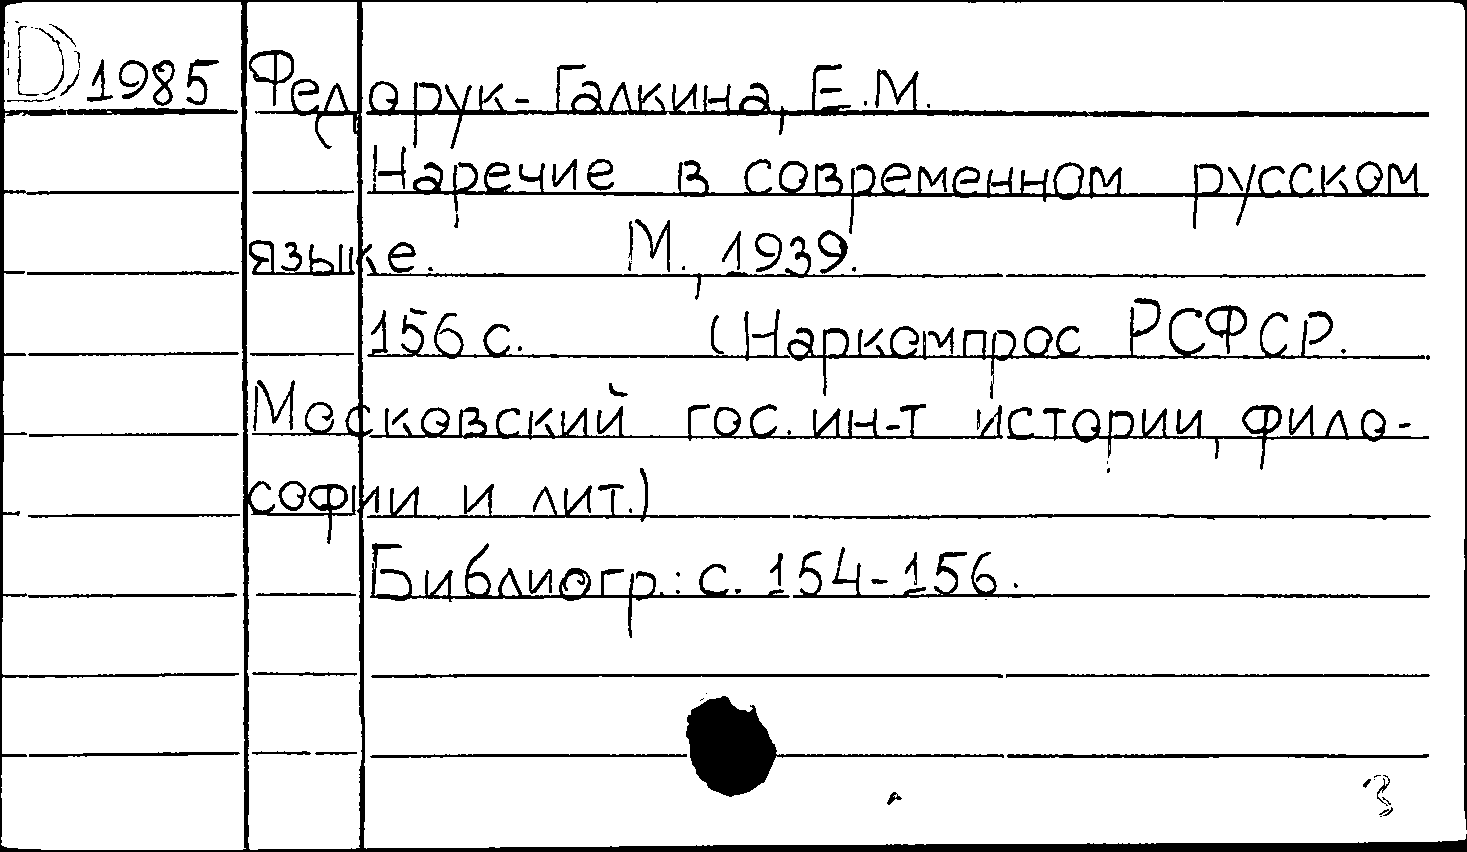 D 1985 Федорук-Галкина, Е.М.
Наречие в современном русском
языке. М., 1939.
156 с. (Наркомпрос РСФСР.
Московский гос. ин-т истории, фило-
софии и лит.)
Библиогр.: с. 154-156.
3